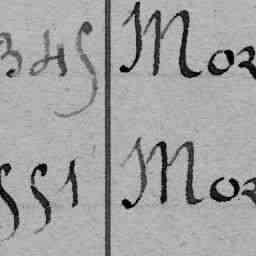 345 Mor
551 Mor